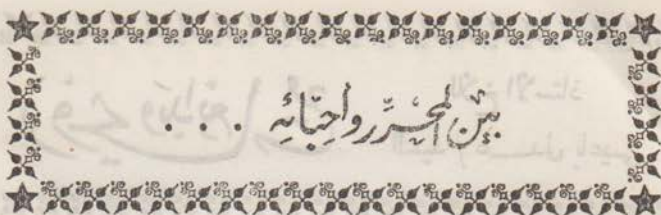 بَيْنَ المُحَرِّر واحِبّائِهِ . . .